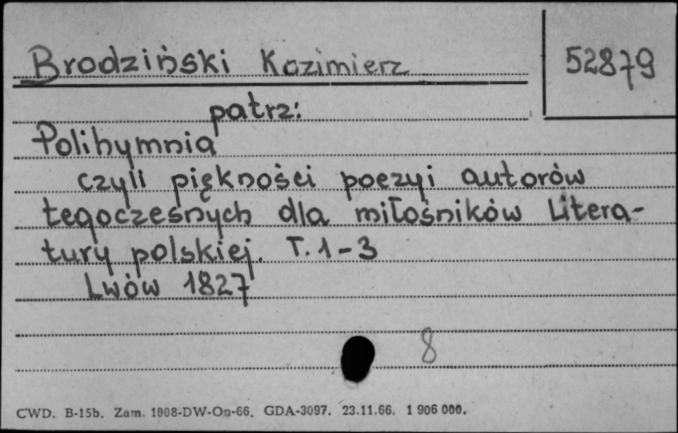 Brodziński Kazimierz
52879
patrz:
Polihymnia
czyli piękności poezyi autorów
tegoczesnych dla miłośników Litera-
tury polskiej. T. 1-3
Lwów 1827
8
CWD. B-15b. Zam. 1008-DW-On-66. GDA-3097. 23.11.66. 1 906 000.